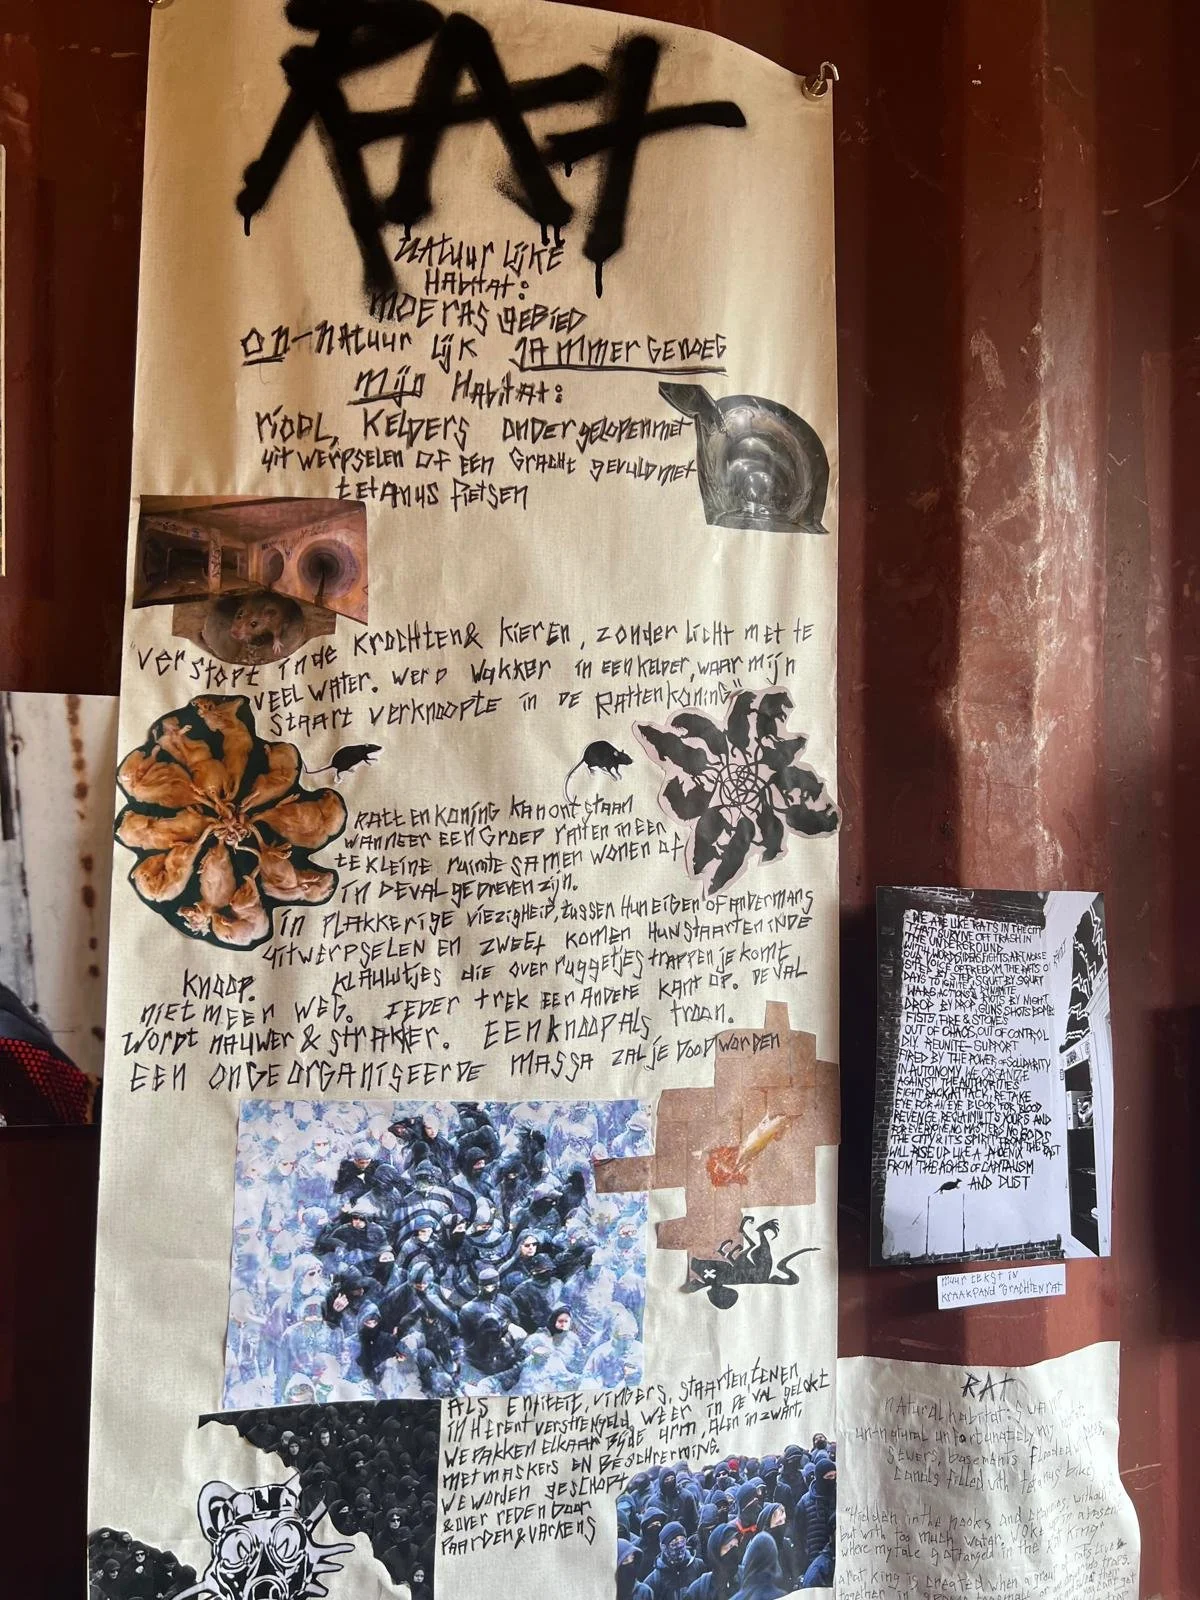 RAT
NATUURLIJKE
HABITAT:
MOERASGEBIED
ON-NATUURLIJK JAMMERGENOEG
MIJN HABITAT:
RIOOL, KELDERS ONDERGELOPEN MET
UITWERPSELEN OF EEN GRACHT GEVULD MET
TETANUS FIETSEN
"VERSTOPT IN DE KROCHTEN & KIEREN, ZONDER LICHT MET TE
VEEL WATER. WERD WAKKER IN EEN KELDER, WAAR MIJN
STAART VERKNOOPTE IN DE RATTENKONING"
RATTENKONING KAN ONTSTAAN
WANNEER EEN GROEP RATTEN IN EEN
TE KLEINE RUIMTE SAMEN WONEN OF
IN DE VAL GEDREVEN ZIJN.
IN PLAKKERIGE VIEZIGHEID, TUSSEN HUN EIGEN OF ANDERMANS
UITWERPSELEN EN ZWEET KOMEN HUN STAARTEN IN DE
KNOOP. KLAUWTJES DIE OVER RUGGETJES TRAPPEN JE KOMT
NIET MEER WEG. IEDER TREK EEN ANDERE KANT OP. DE VAL
WORDT NAUWER & STRAKKER. EEN KNOOP ALS TROON.
EEN ONGEORGANISEERDE MASSA ZAL JE DOOD WORDEN
ALS ENTITEIT, VINGERS, STAARTEN, TENEN
IN H VERSTRENGELD. WEER IN DE VAL GELOKT
WE PAKKEN ELKAAR BIJ DE ARM, ALLEN IN ZWART,
MET MASKERS EN BESCHERMING.
WE WORDEN GESCHOPT
& OVERREDEN DOOR
PAARDEN & VARKENS
WE ARE LIKE RATS IN THE CITY
THAT SURVIVE OFF TRASH IN
THE UNDERGROUND
OUR WORDS IDEAS FIGHTS ART NOISE
STEP OF FREEDOM THE RATS
DAYS TO IGNITE, SQUAT BY SQUAT
WARS ACTIONS DYNAMITE
DROP BY DROP, RIOTS BY NIGHT
FISTS, FIRE & STONES GUNS SHOTS BOMBS
OUT OF CHAOS, OUT OF CONTROL
DIY REUNITE-SUPPORT
FIRED BY THE POWER OF SOLIDARITY
IN AUTONOMY WE ORGANIZE
AGAINST THE AUTHORITIES
FIGHT BACK ATTACK, RETAKE
EYE FOR AN EYE BLOOD FOR BLOOD
REVENGE RECLAIM IT'S YOURS AND
FOR EVERYONE NO MASTERS NO GODS
THE CITY & IT'S SPIRIT FROM THE PAST
WILL RISE UP LIKE A PHOENIX
FROM THE ASHES OF CAPITALISM
AND DUST
MUUR TEKST IN
KRAAKPAND "GRACHTENRAT
RAT
Natural habitat: swam
un-natural unfortunately my habitat:
Sewers, basements flooded
Canals filled with tetanus bikes
"Hidden in the nooks and crannies, without
but with too much water. Woke in a basement
where my tale gotranged in the Rat King"
a rat king is created when a group of rats live
together in